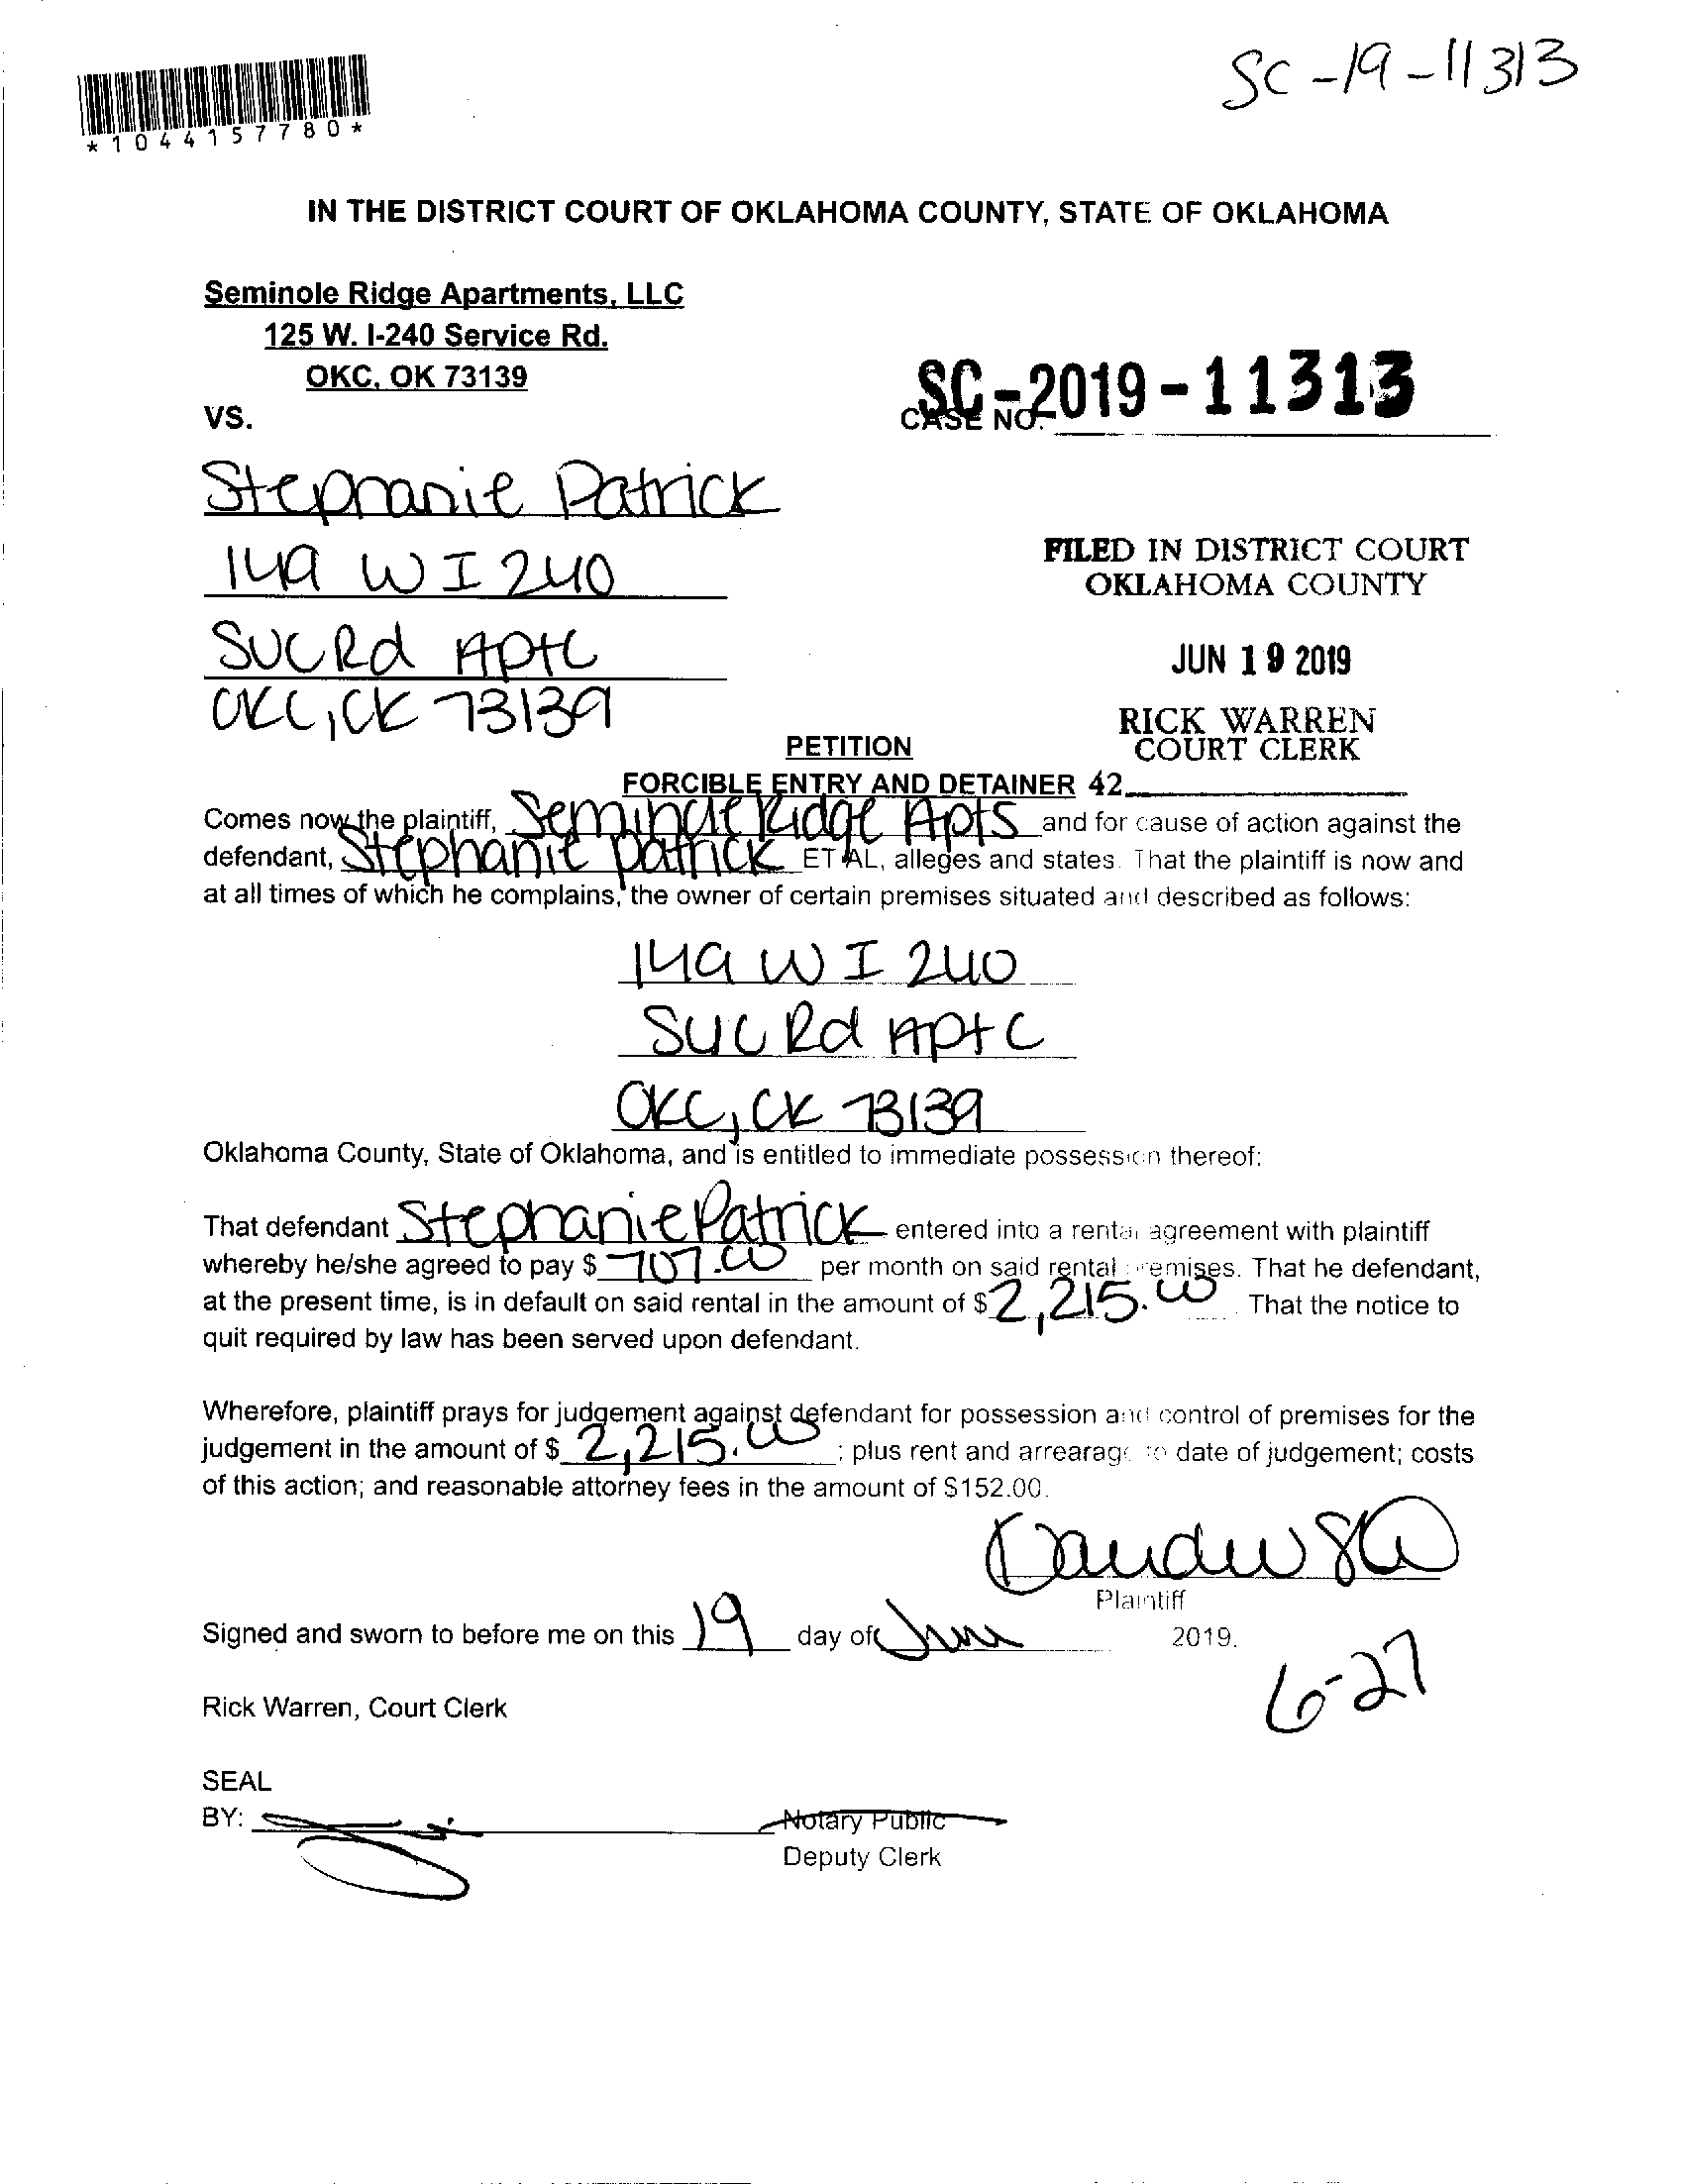 SC-19-11313
*1044157780*
IN THE DISTRICT COURT OF OKLAHOMA COUNTY, STATE OF OKLAHOMA
Seminole Ridge Apartments, LLC
125 W. I-240 Service Rd.
OKC, OK 73139
VS.
CASE NO. SC-2019-11313
Stephanie Patrick
149 W I 240
SVC Rd Apt C
OKC, OK 73139
FILED IN DISTRICT COURT
OKLAHOMA COUNTY
JUN 19 2019
RICK WARREN
COURT CLERK
42
PETITION
FORCIBLE ENTRY AND DETAINER
Comes now the plaintiff, Seminole Ridge Apts and for cause of action against the
defendant, Stephanie Patrick ET AL, alleges and states. That the plaintiff is now and
at all times of which he complains, the owner of certain premises situated and described as follows:
149 W I 240
SVC Rd Apt C
OKC, OK 73139
Oklahoma County, State of Oklahoma, and is entitled to immediate possession thereof:
That defendant Stephanie Patrick entered into a rental agreement with plaintiff
whereby he/she agreed to pay $ 707.00 per month on said rental premises. That he defendant,
at the present time, is in default on said rental in the amount of $ 2,215.00. That the notice to
quit required by law has been served upon defendant.
Wherefore, plaintiff prays for judgement against defendant for possession and control of premises for the
judgement in the amount of $ 2,215.00; plus rent and arrearage to date of judgement; costs
of this action; and reasonable attorney fees in the amount of $152.00.
Plaintiff
Signed and sworn to before me on this 19 day of June 2019.
6-27
Rick Warren, Court Clerk
SEAL
BY:
Notary Public
Deputy Clerk